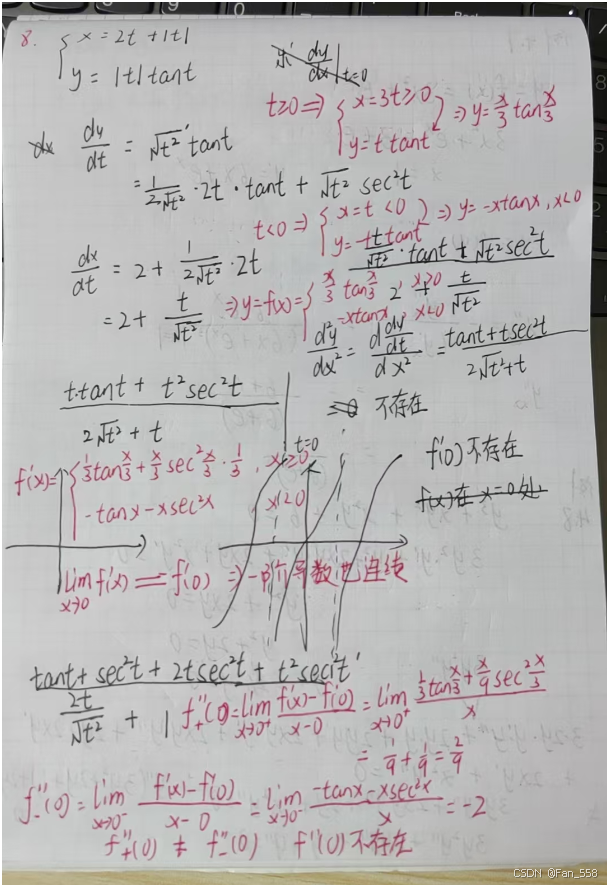 8. { x = 2t + |t|
y = |t| tant
求 dy/dx |t=0
t≥0 ⇒ { x = 3t ≥ 0
y = t tant } ⇒ y = x/3 tan x/3
dy/dt = √t² ' tant
= 1/(2√t²) · 2t · tant + √t² sec²t
t<0 ⇒ { x = t < 0
y = -t tant } ⇒ y = -xtanx, x<0
dx/dt = 2 + 1/(2√t²) · 2t
= 2 + t/√t²
t/√t² · tant + √t² sec²t
2 + t/√t²
⇒ y = f(x) = { x/3 tan x/3, x≥0
-xtanx, x<0
d²y/dx² = d dy/dt / dx² = tant + tsec²t / 2√t² + t
t·tant + t² sec²t
2√t² + t
t=0
不存在
f'(x) = { 1/3 tan x/3 + x/3 sec² x/3 · 1/3, x≥0
-tanx - xsec²x x<0
f'(0) 不存在
f(x)在 x=0处
lim x→0 f'(x) = f'(0) ⇒ 一阶导数也连续
tant + sec²t + 2tsec²t + t² sec²t '
2t/√t² + 1
f''₊(0) = lim x→0⁺ f'(x) - f'(0) / x-0 = lim x→0⁺ 1/3 tan x/3 + x/9 sec² x/3 / x
= 1/9 + 1/9 = 2/9
f''₋(0) = lim x→0⁻ f'(x) - f'(0) / x - 0 = lim x→0⁻ -tanx - xsec²x / x = -2
f''₊(0) ≠ f''₋(0) f''(0) 不存在
CSDN @Fan_558